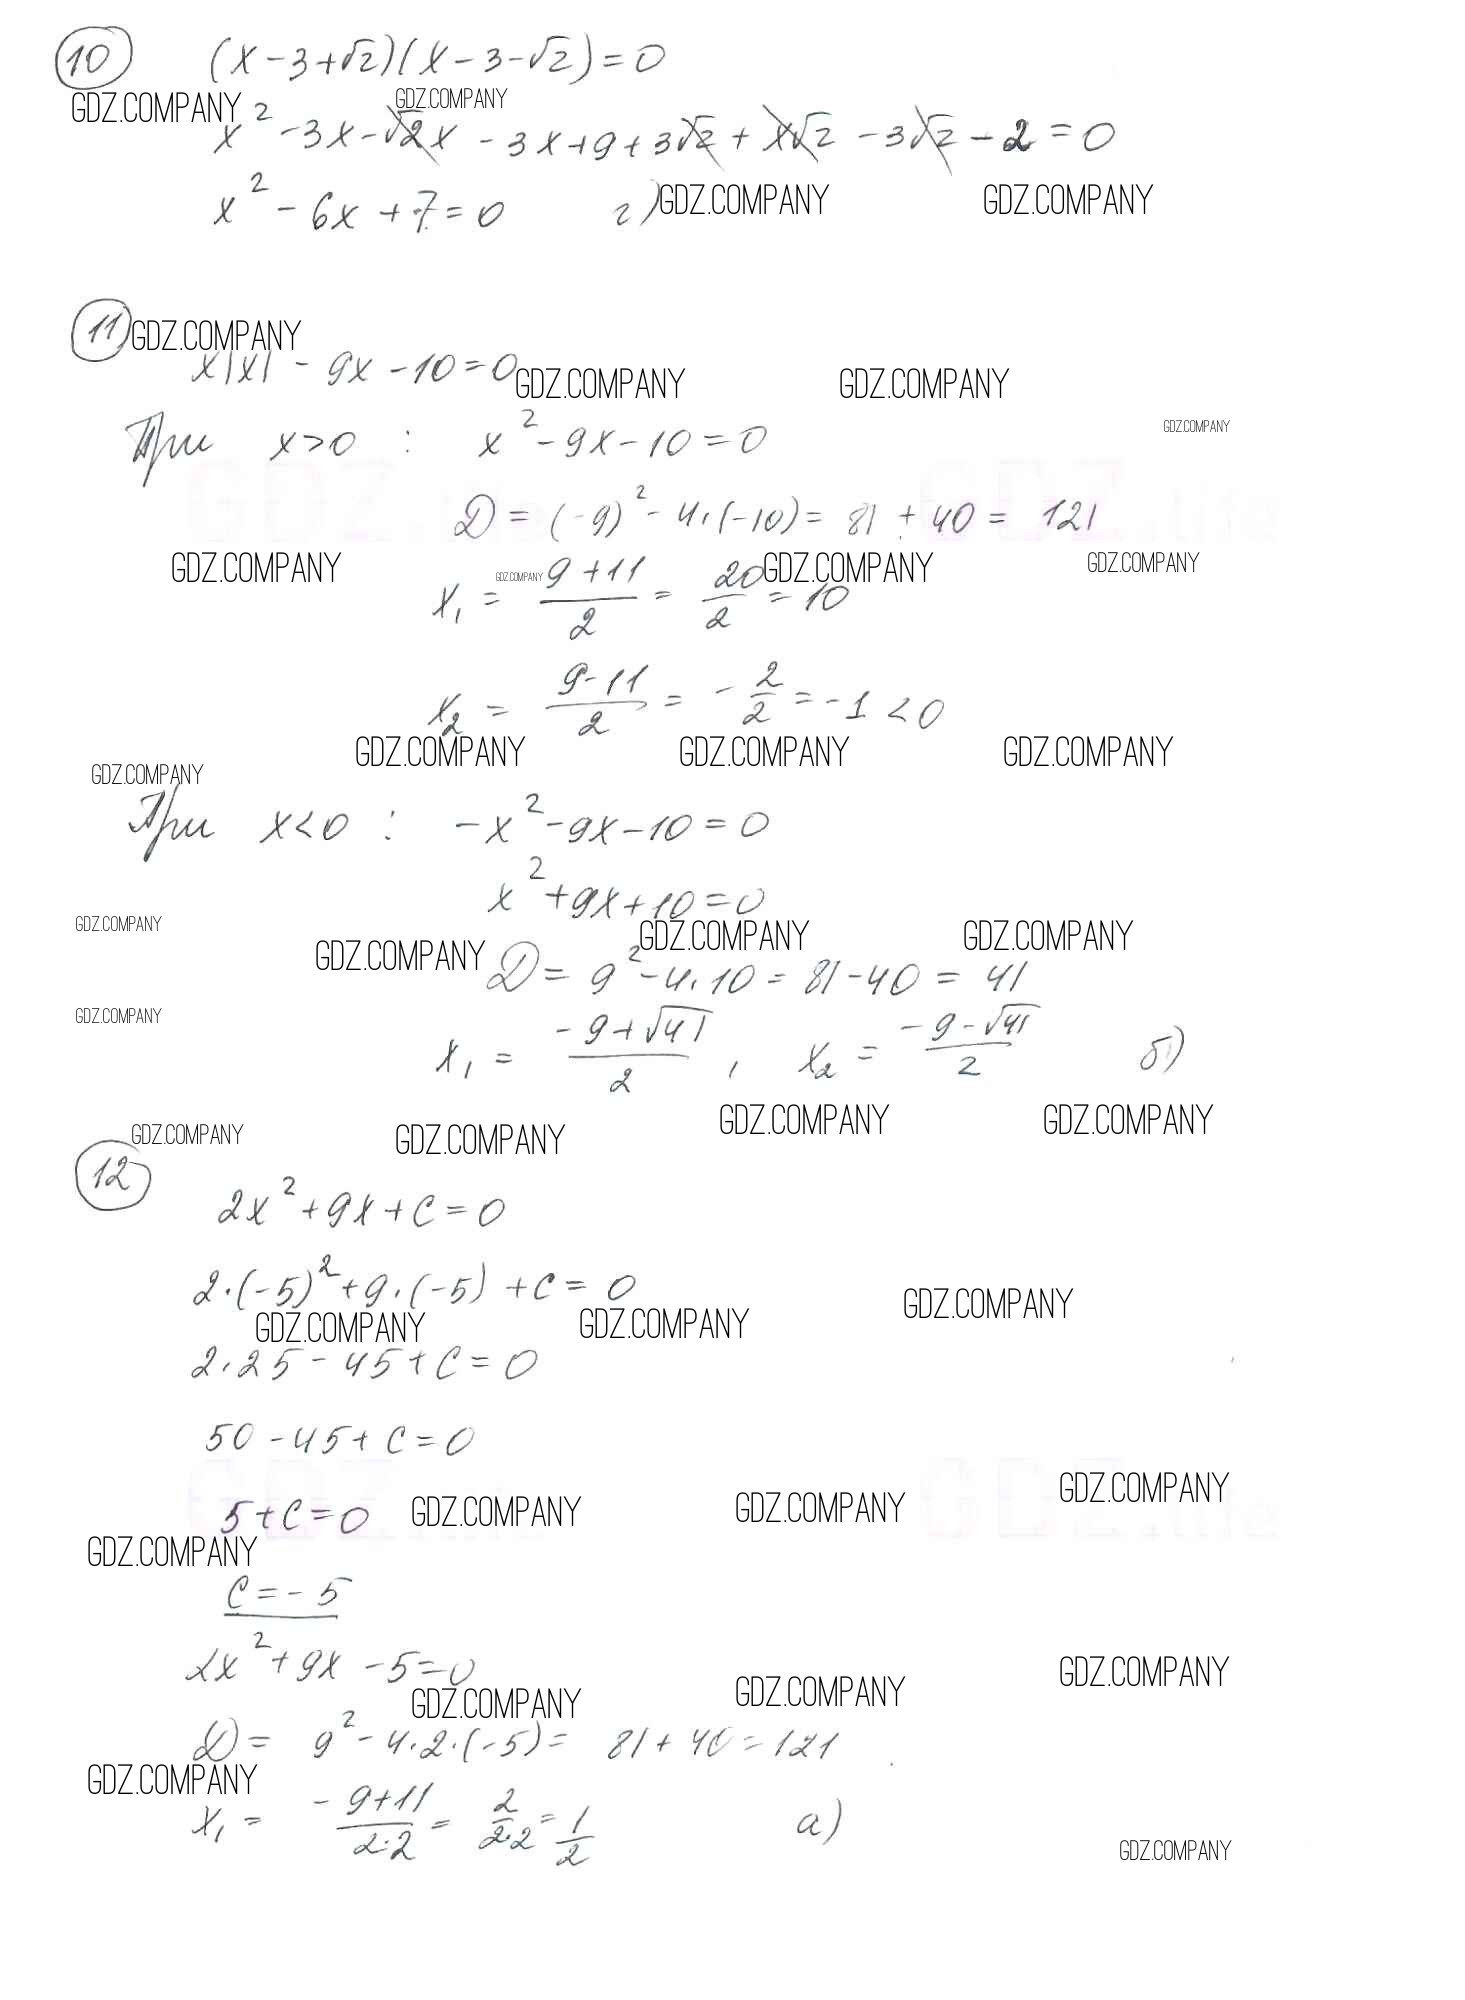 10 (x-3+√2)(x-3-√2)=0
GDZ.COMPANY GDZ.COMPANY
x²-3x-√2x-3x+9+3√2+x√2-3√2-2=0
x²-6x+7=0 г) GDZ.COMPANY GDZ.COMPANY
11 GDZ.COMPANY
x|x|-9x-10=0 GDZ.COMPANY GDZ.COMPANY
GDZ.COMPANY
При x>0 : x²-9x-10=0
GDZ.life GDZ.life
D=(-9)²-4·(-10)=81+40=121
GDZ.COMPANY GDZ.COMPANY GDZ.COMPANY GDZ.COMPANY
x₁=(9+11)/2=20/2=10
x₂=(9-11)/2=-2/2=-1<0
GDZ.COMPANY GDZ.COMPANY GDZ.COMPANY
GDZ.COMPANY
При x<0 : -x²-9x-10=0
x²+9x+10=0
GDZ.COMPANY GDZ.COMPANY GDZ.COMPANY GDZ.COMPANY
D=9²-4·10=81-40=41
GDZ.COMPANY
x₁=(-9+√41)/2, x₂=(-9-√41)/2 б)
GDZ.COMPANY GDZ.COMPANY GDZ.COMPANY GDZ.COMPANY
12
2x²+9x+c=0
2·(-5)²+9·(-5)+c=0
GDZ.COMPANY GDZ.COMPANY GDZ.COMPANY
2·25-45+c=0
50-45+c=0
GDZ.life GDZ.life
5+c=0 GDZ.COMPANY GDZ.COMPANY GDZ.COMPANY
GDZ.COMPANY
c=-5
2x²+9x-5=0
GDZ.COMPANY GDZ.COMPANY GDZ.COMPANY
D=9²-4·2·(-5)=81+40=121
GDZ.COMPANY
x₁=(-9+11)/(2·2)=2/(2·2)=1/2 а)
GDZ.COMPANY